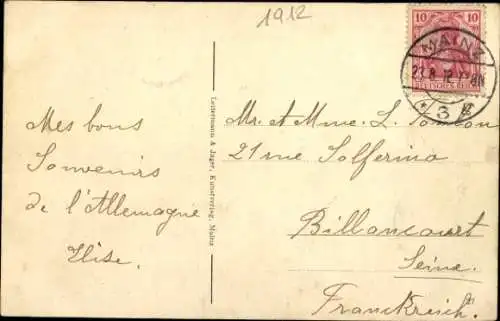 1912
10 10
DEUTSCHES REICH
MAINZ
27.8.12
* 3
Mes bons
Souvenirs
de l'Allemagne
Ilise.
Lautermann & Jäger, Kunstverlag, Mainz
Mr. et Mme. L.
21 rue Solferino
Billancourt
Seine.
Franckreich.